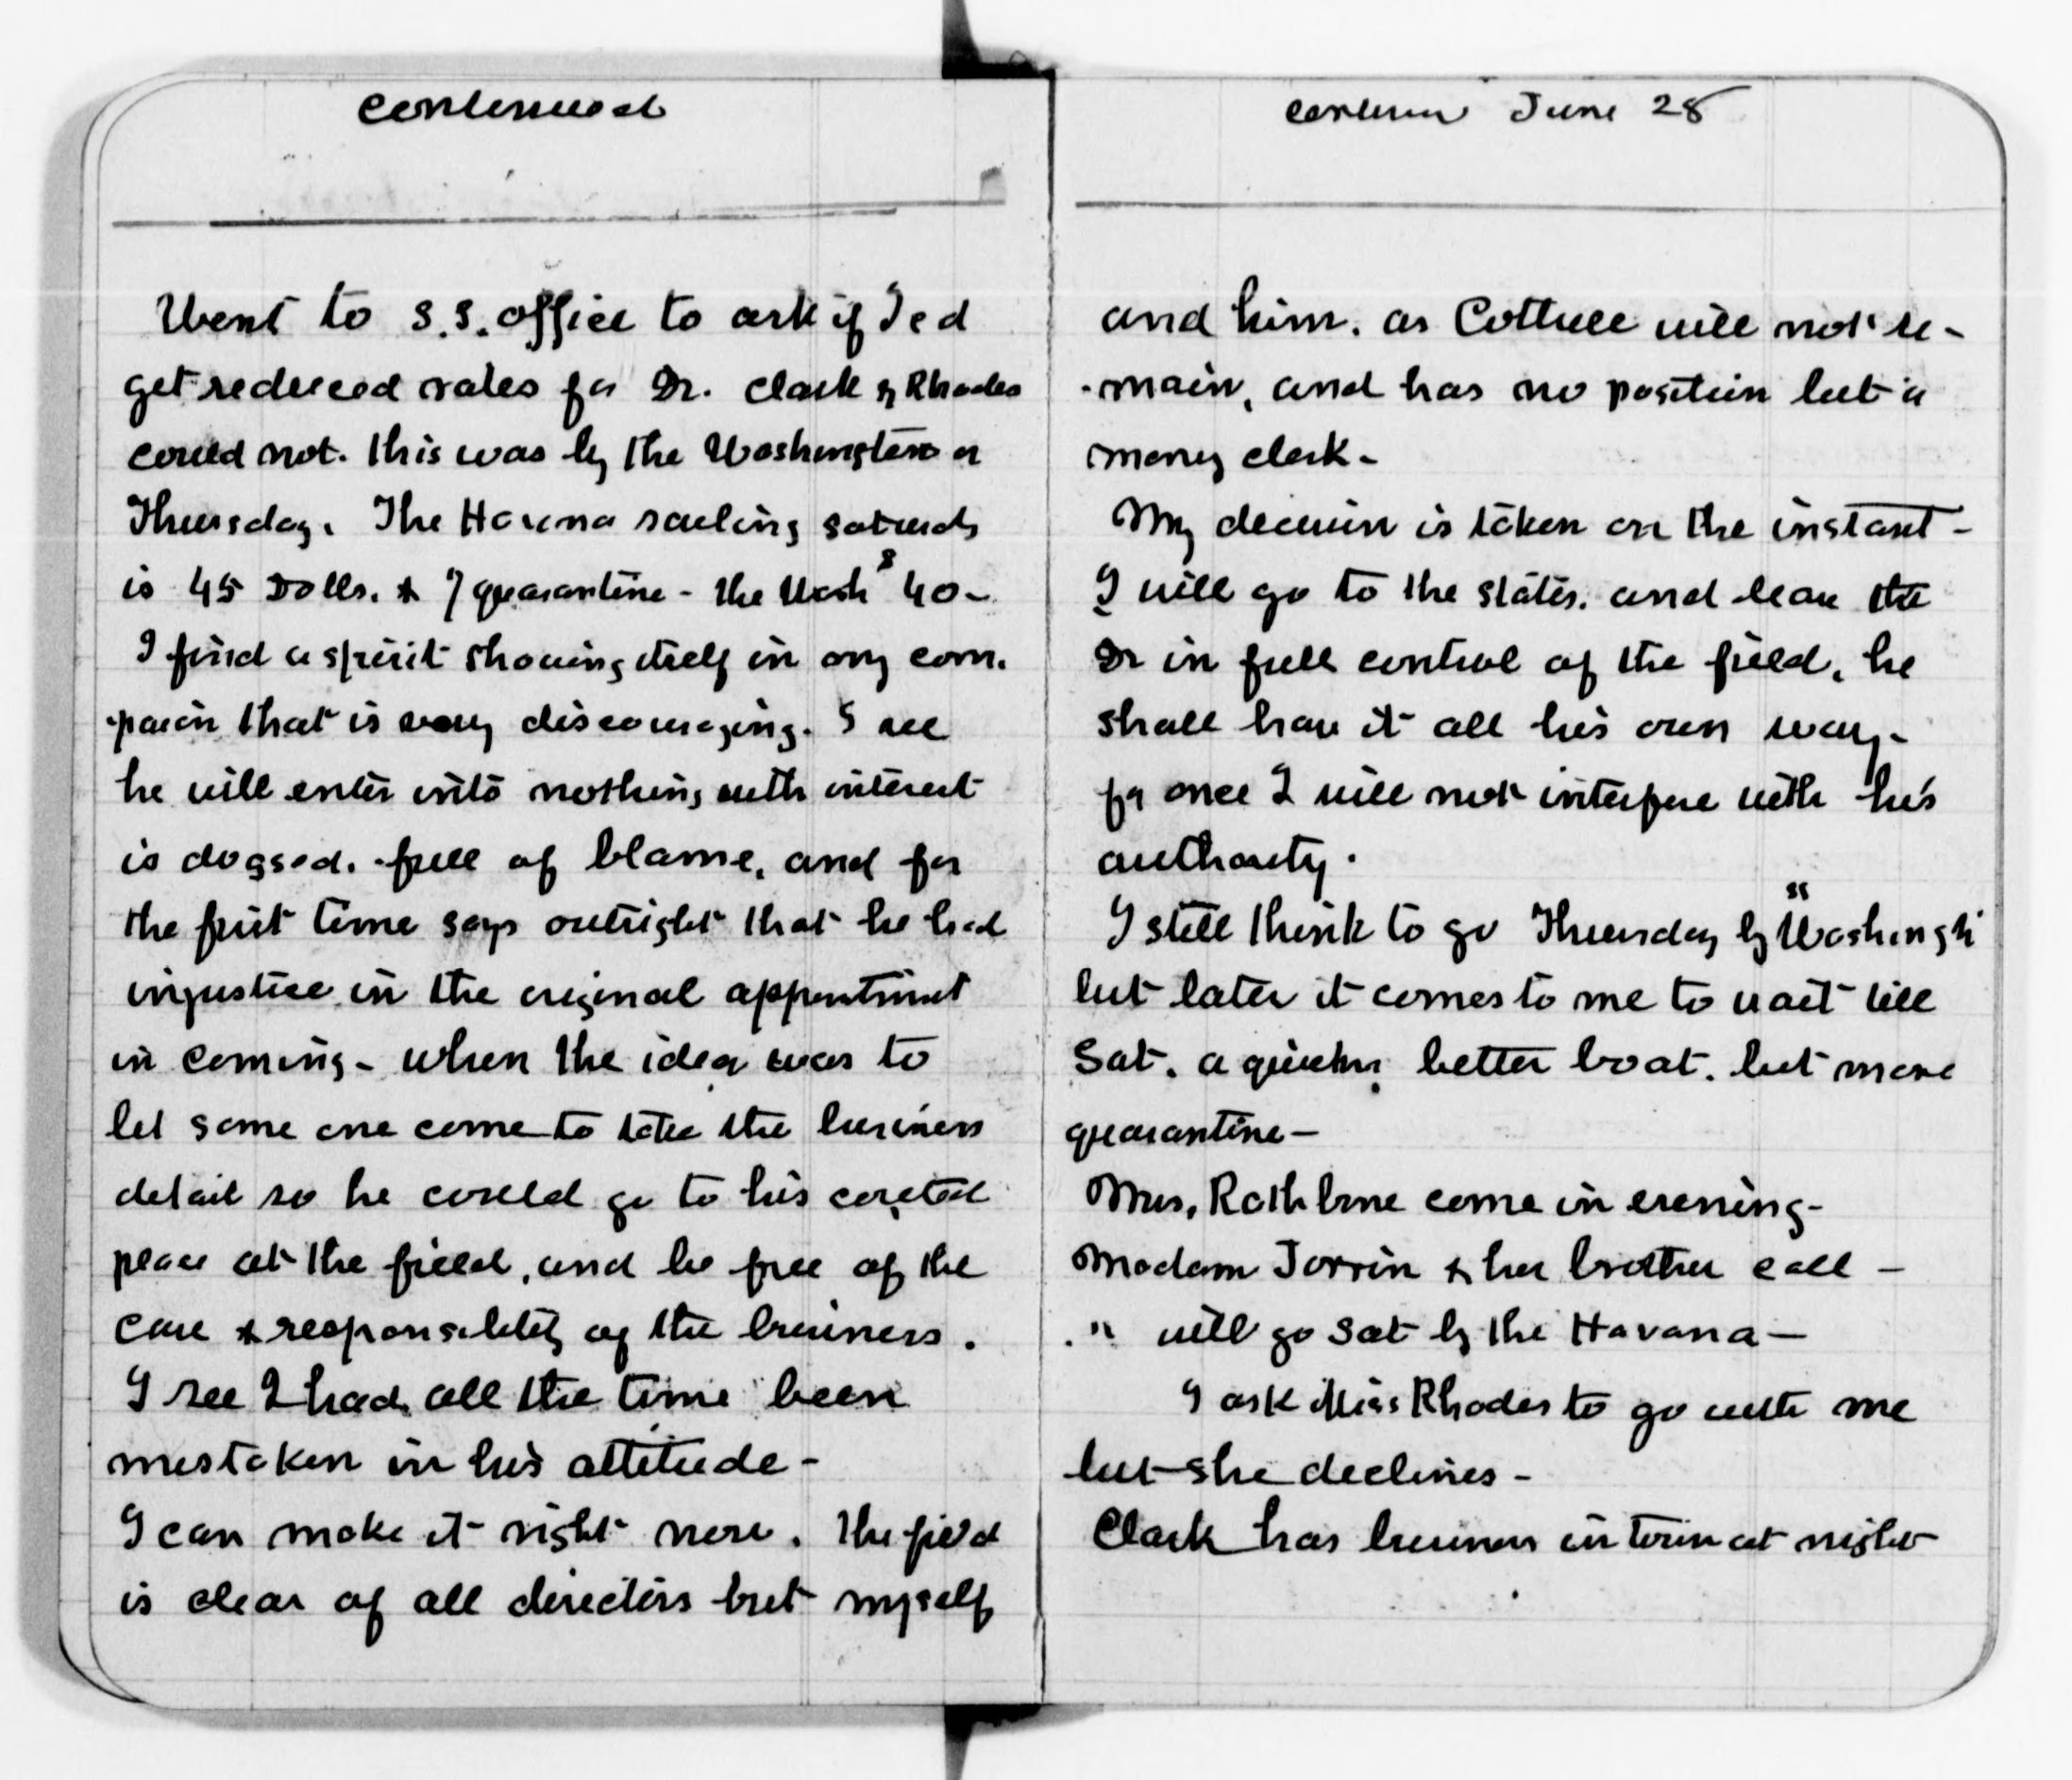 continued
Went to S.S. office to ask if I cd
get reduced rates for Dr. Clark & Rhodes
could not. this was by the Washington on
Thursday. The Havana sailing saturdy
is 45 Dolls. & 7 quarantine - the Wash 8 40 -
I find a spirit showing itself in my com.
-pain that is very discouraging. I see
he will enter into nothing with interest
is dogged. full of blame, and for
the first time says outright that he had
injustice in the original appointment
in coming - when the idea was to
let some one come to take the business
detail so he could go to his coveted
place at the field, and be free of the
care & responsibility of the business.
I see I had all the time been
mistaken in his attitude -
I can make it right now. the field
is clear of all directors but myself
continu June 28
and him. as Cottrell will not re-
-main, and has no position but a
money clerk -
My decision is taken on the instant -
I will go to the states. and leave the
Dr in full control of the field, he
shall have it all his own way -
for once I will not interfere with his
authority.
I still think to go Thursday by "Washingtn
but later it comes to me to wait till
Sat. a quicker better boat. but more
quarantine -
Mrs, Rathbone come in evening -
Madam Torrin & her brother call -
" will go Sat by the Havana -
I ask Miss Rhodes to go with me
but she declines -
Clark has business in town at night